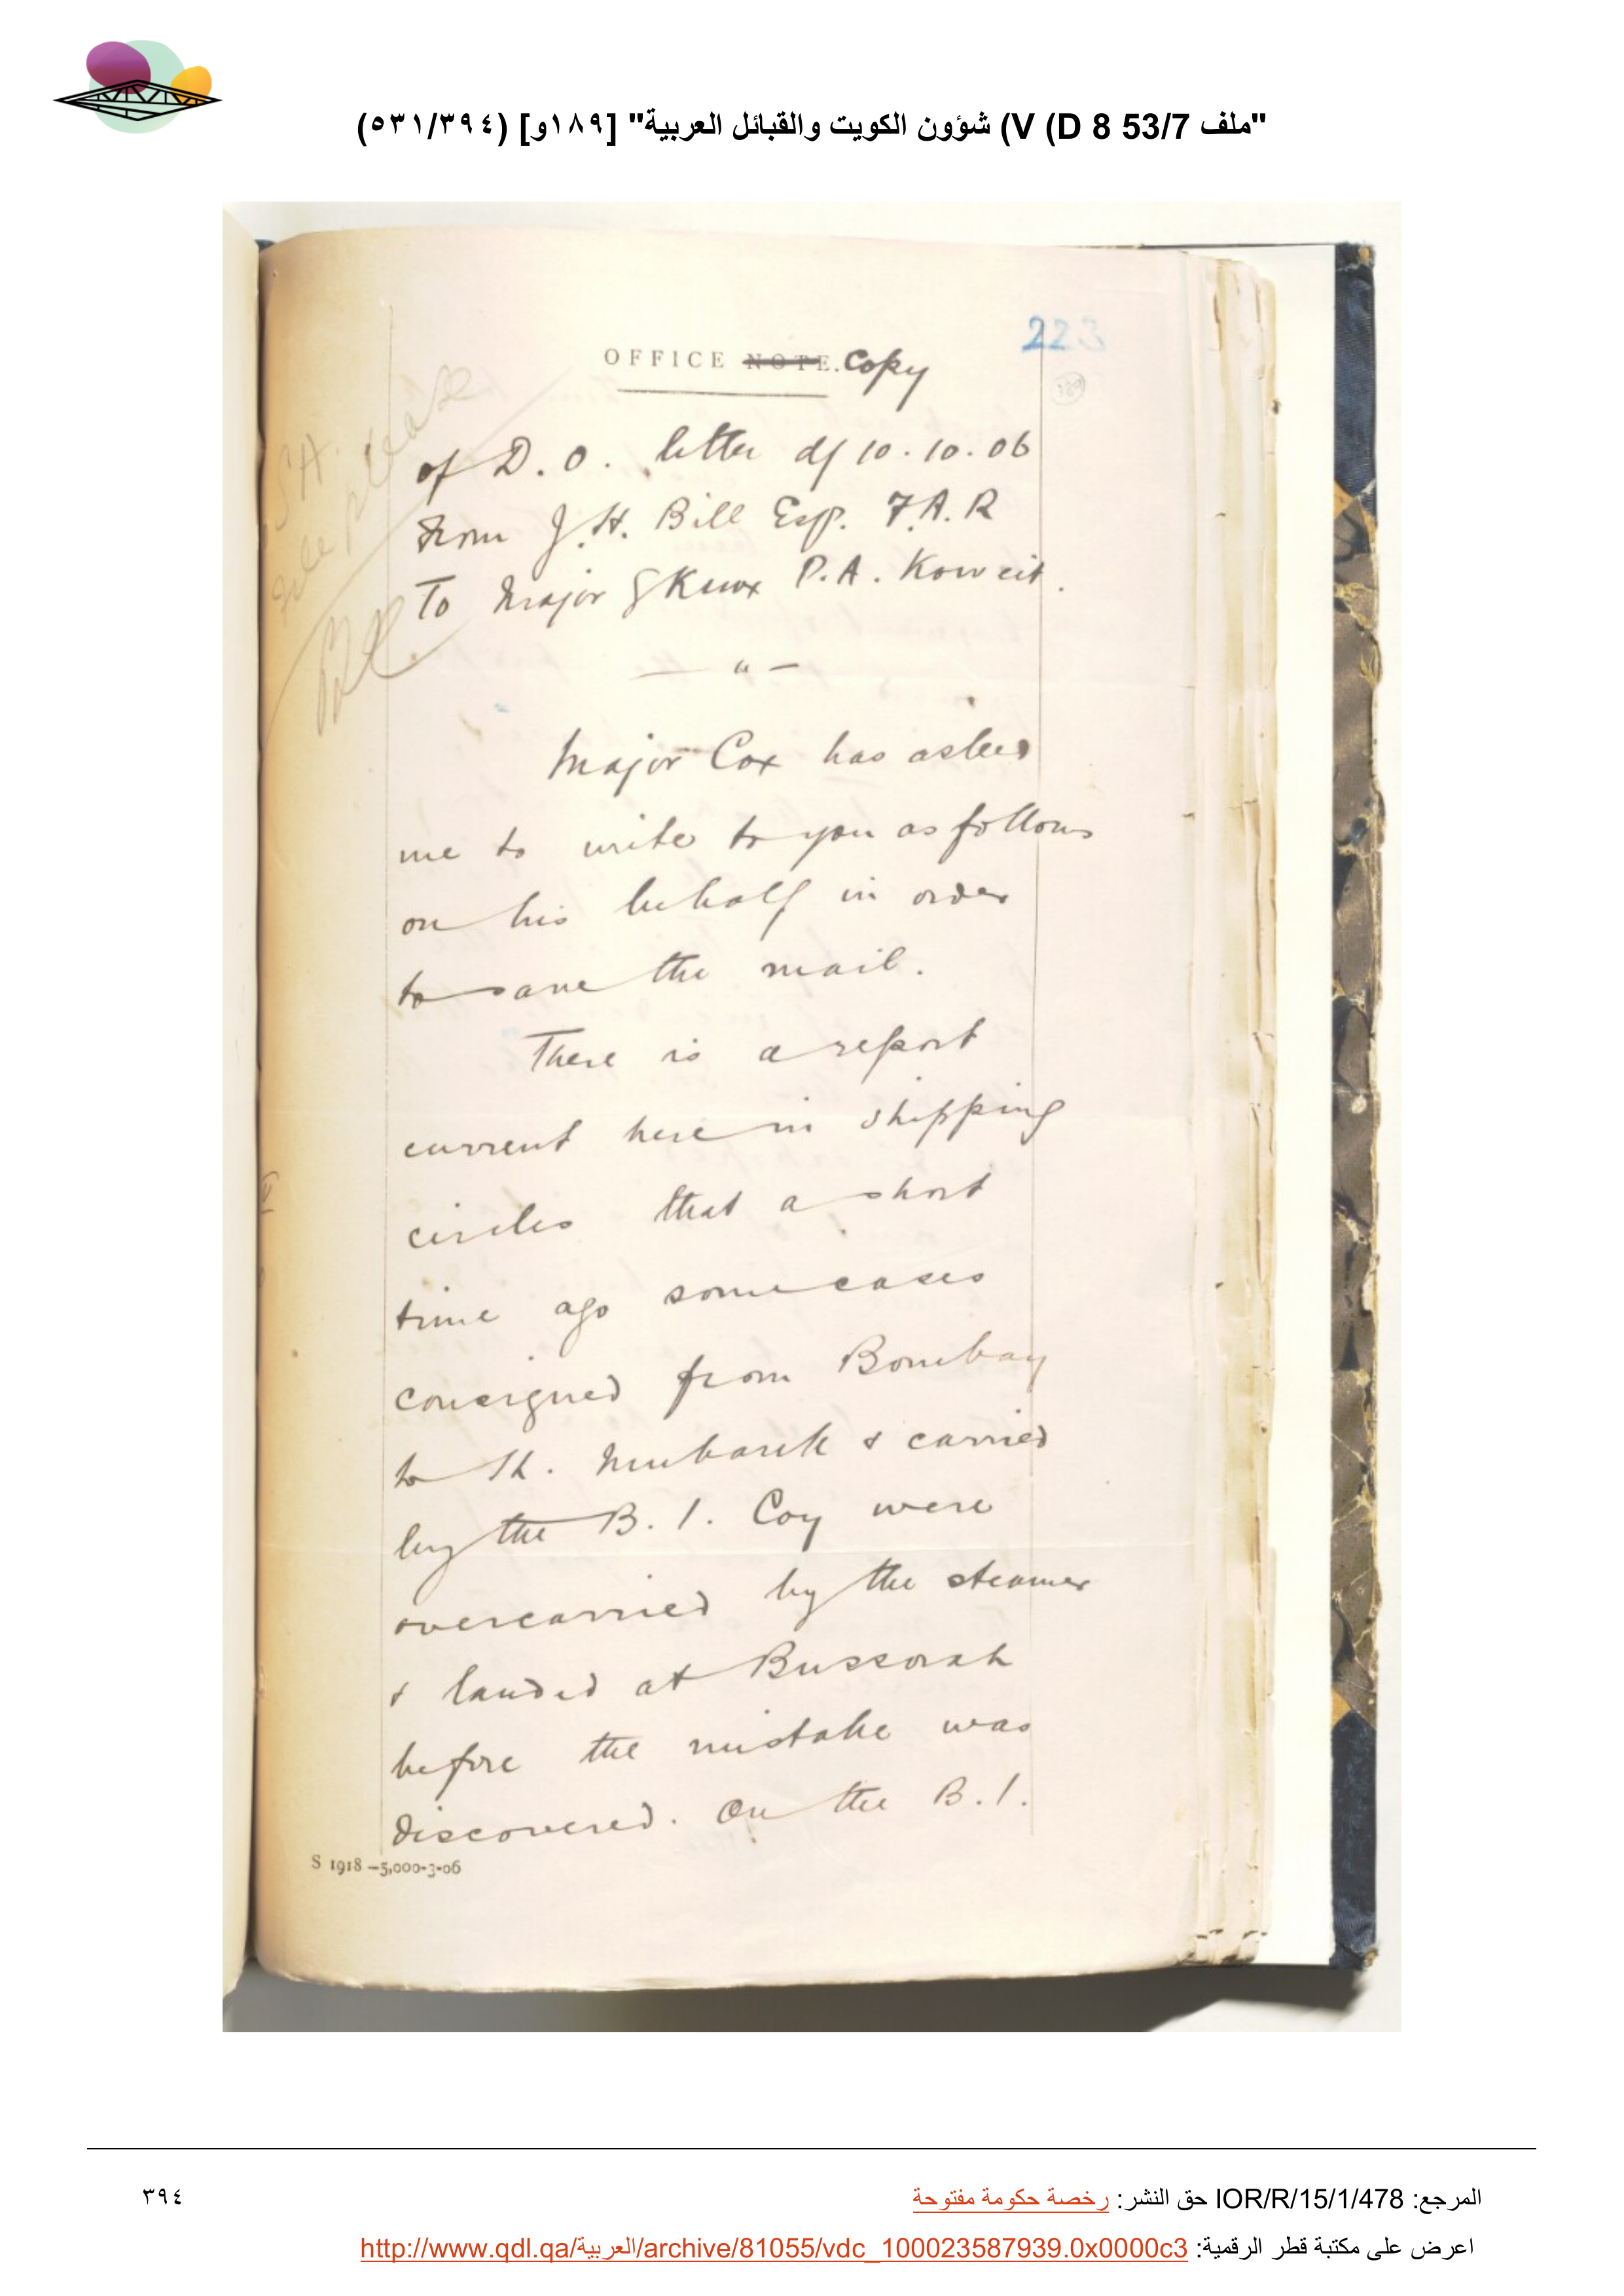 "ملف 53/7 V (D 8) شؤون الكويت والقبائل العربية" [١٨٩و] (٥٣١/٣٩٤)
223
OFFICE NOTE. Copy
189
of D.O. letter d/ 10.10.06
From J.H. Bill Esq. F.A.R
To Major S Knox P.A. Koweit.
— " —
Major Cox has asked
me to write to you as follows
on his behalf in order
to save the mail.
There is a report
current here in shipping
circles that a short
time ago some cases
consigned from Bombay
to Sh. Mubarak & carried
by the B.I. Coy were
overcarried by the steamer
& landed at Bussorah
before the mistake was
discovered. On the B.I.
S 1918—5,000-3-06
file please
المرجع: IOR/R/15/1/478 حق النشر: رخصة حكومة مفتوحة
٣٩٤
اعرض على مكتبة قطر الرقمية: http://www.qdl.qa/العربية/archive/81055/vdc_100023587939.0x0000c3